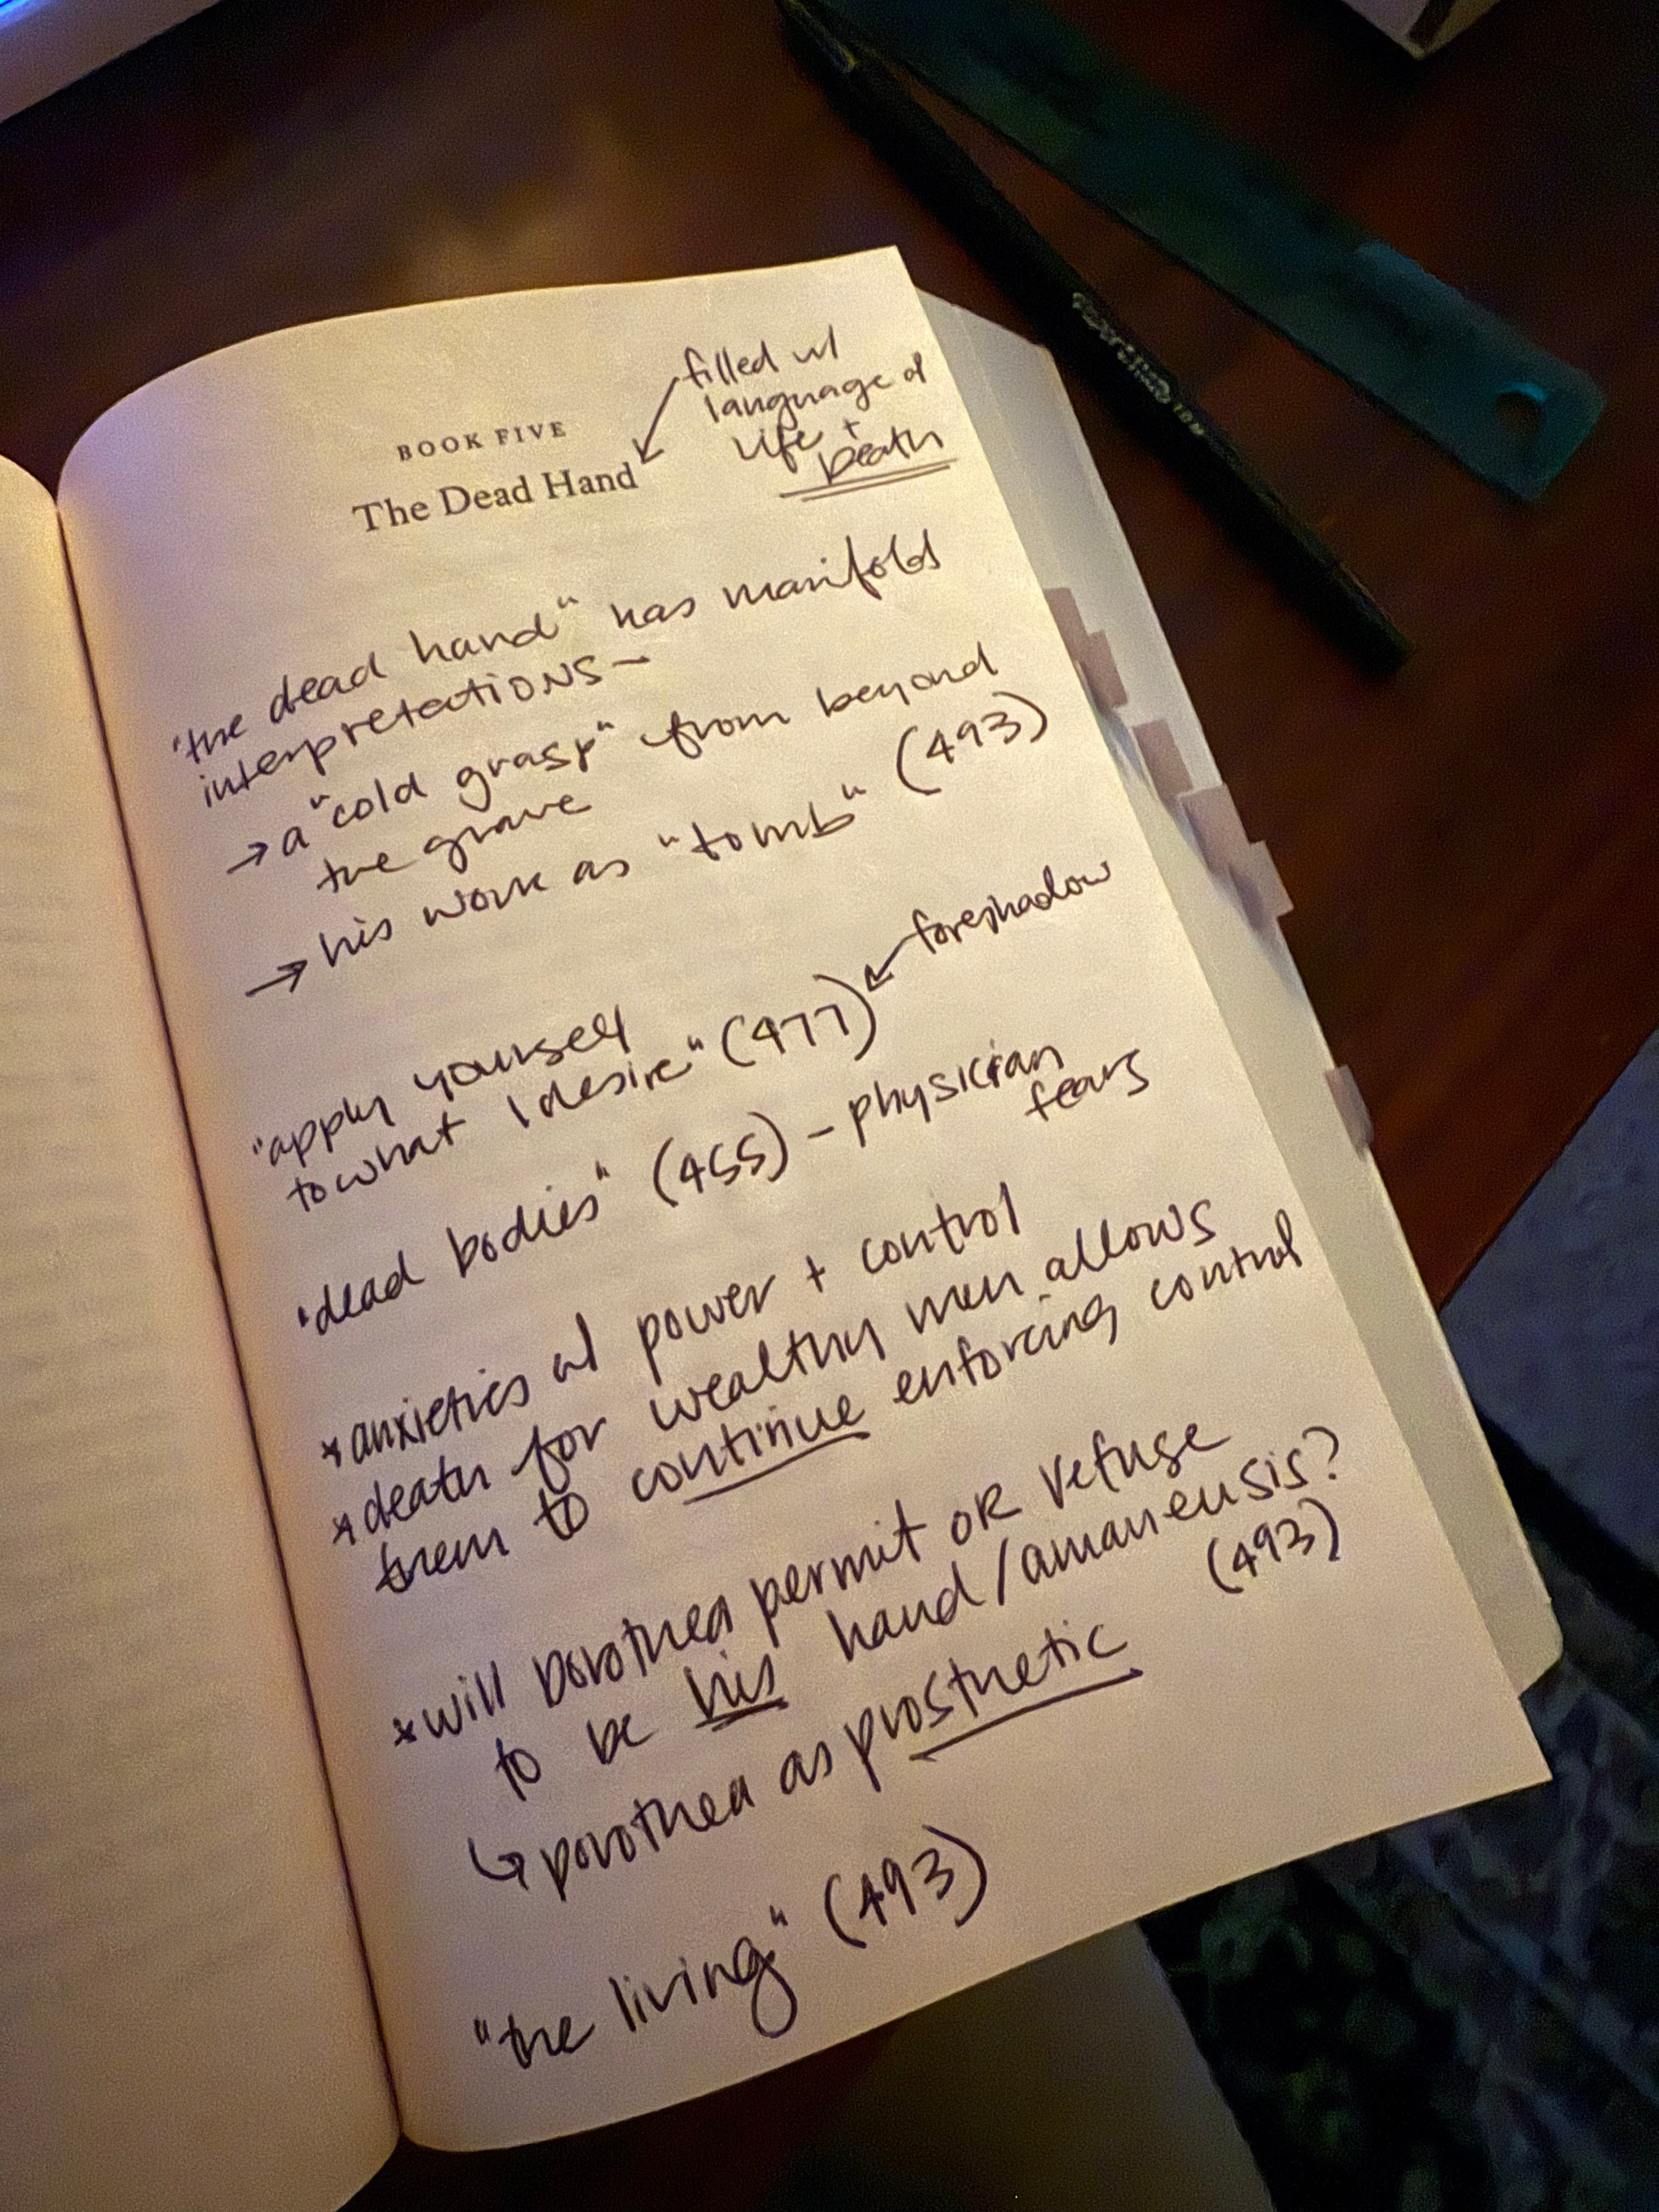 BOOK FIVE
The Dead Hand
filled w/
language of
life +
Death
"the dead hand" has manifold
interpretations –
→ a "cold grasp" from beyond
the grave
→ his work as "tomb" (493)
"apply yourself
to what I desire" (477)
foreshadow
"dead bodies" (455) – physician
fears
* anxieties w/ power + control
* death for wealthy men allows
them to continue enforcing control
* will Dorothea permit or refuse
to be his hand/amanensis?
(493)
↳ Dorothea as prosthetic
"the living" (493)